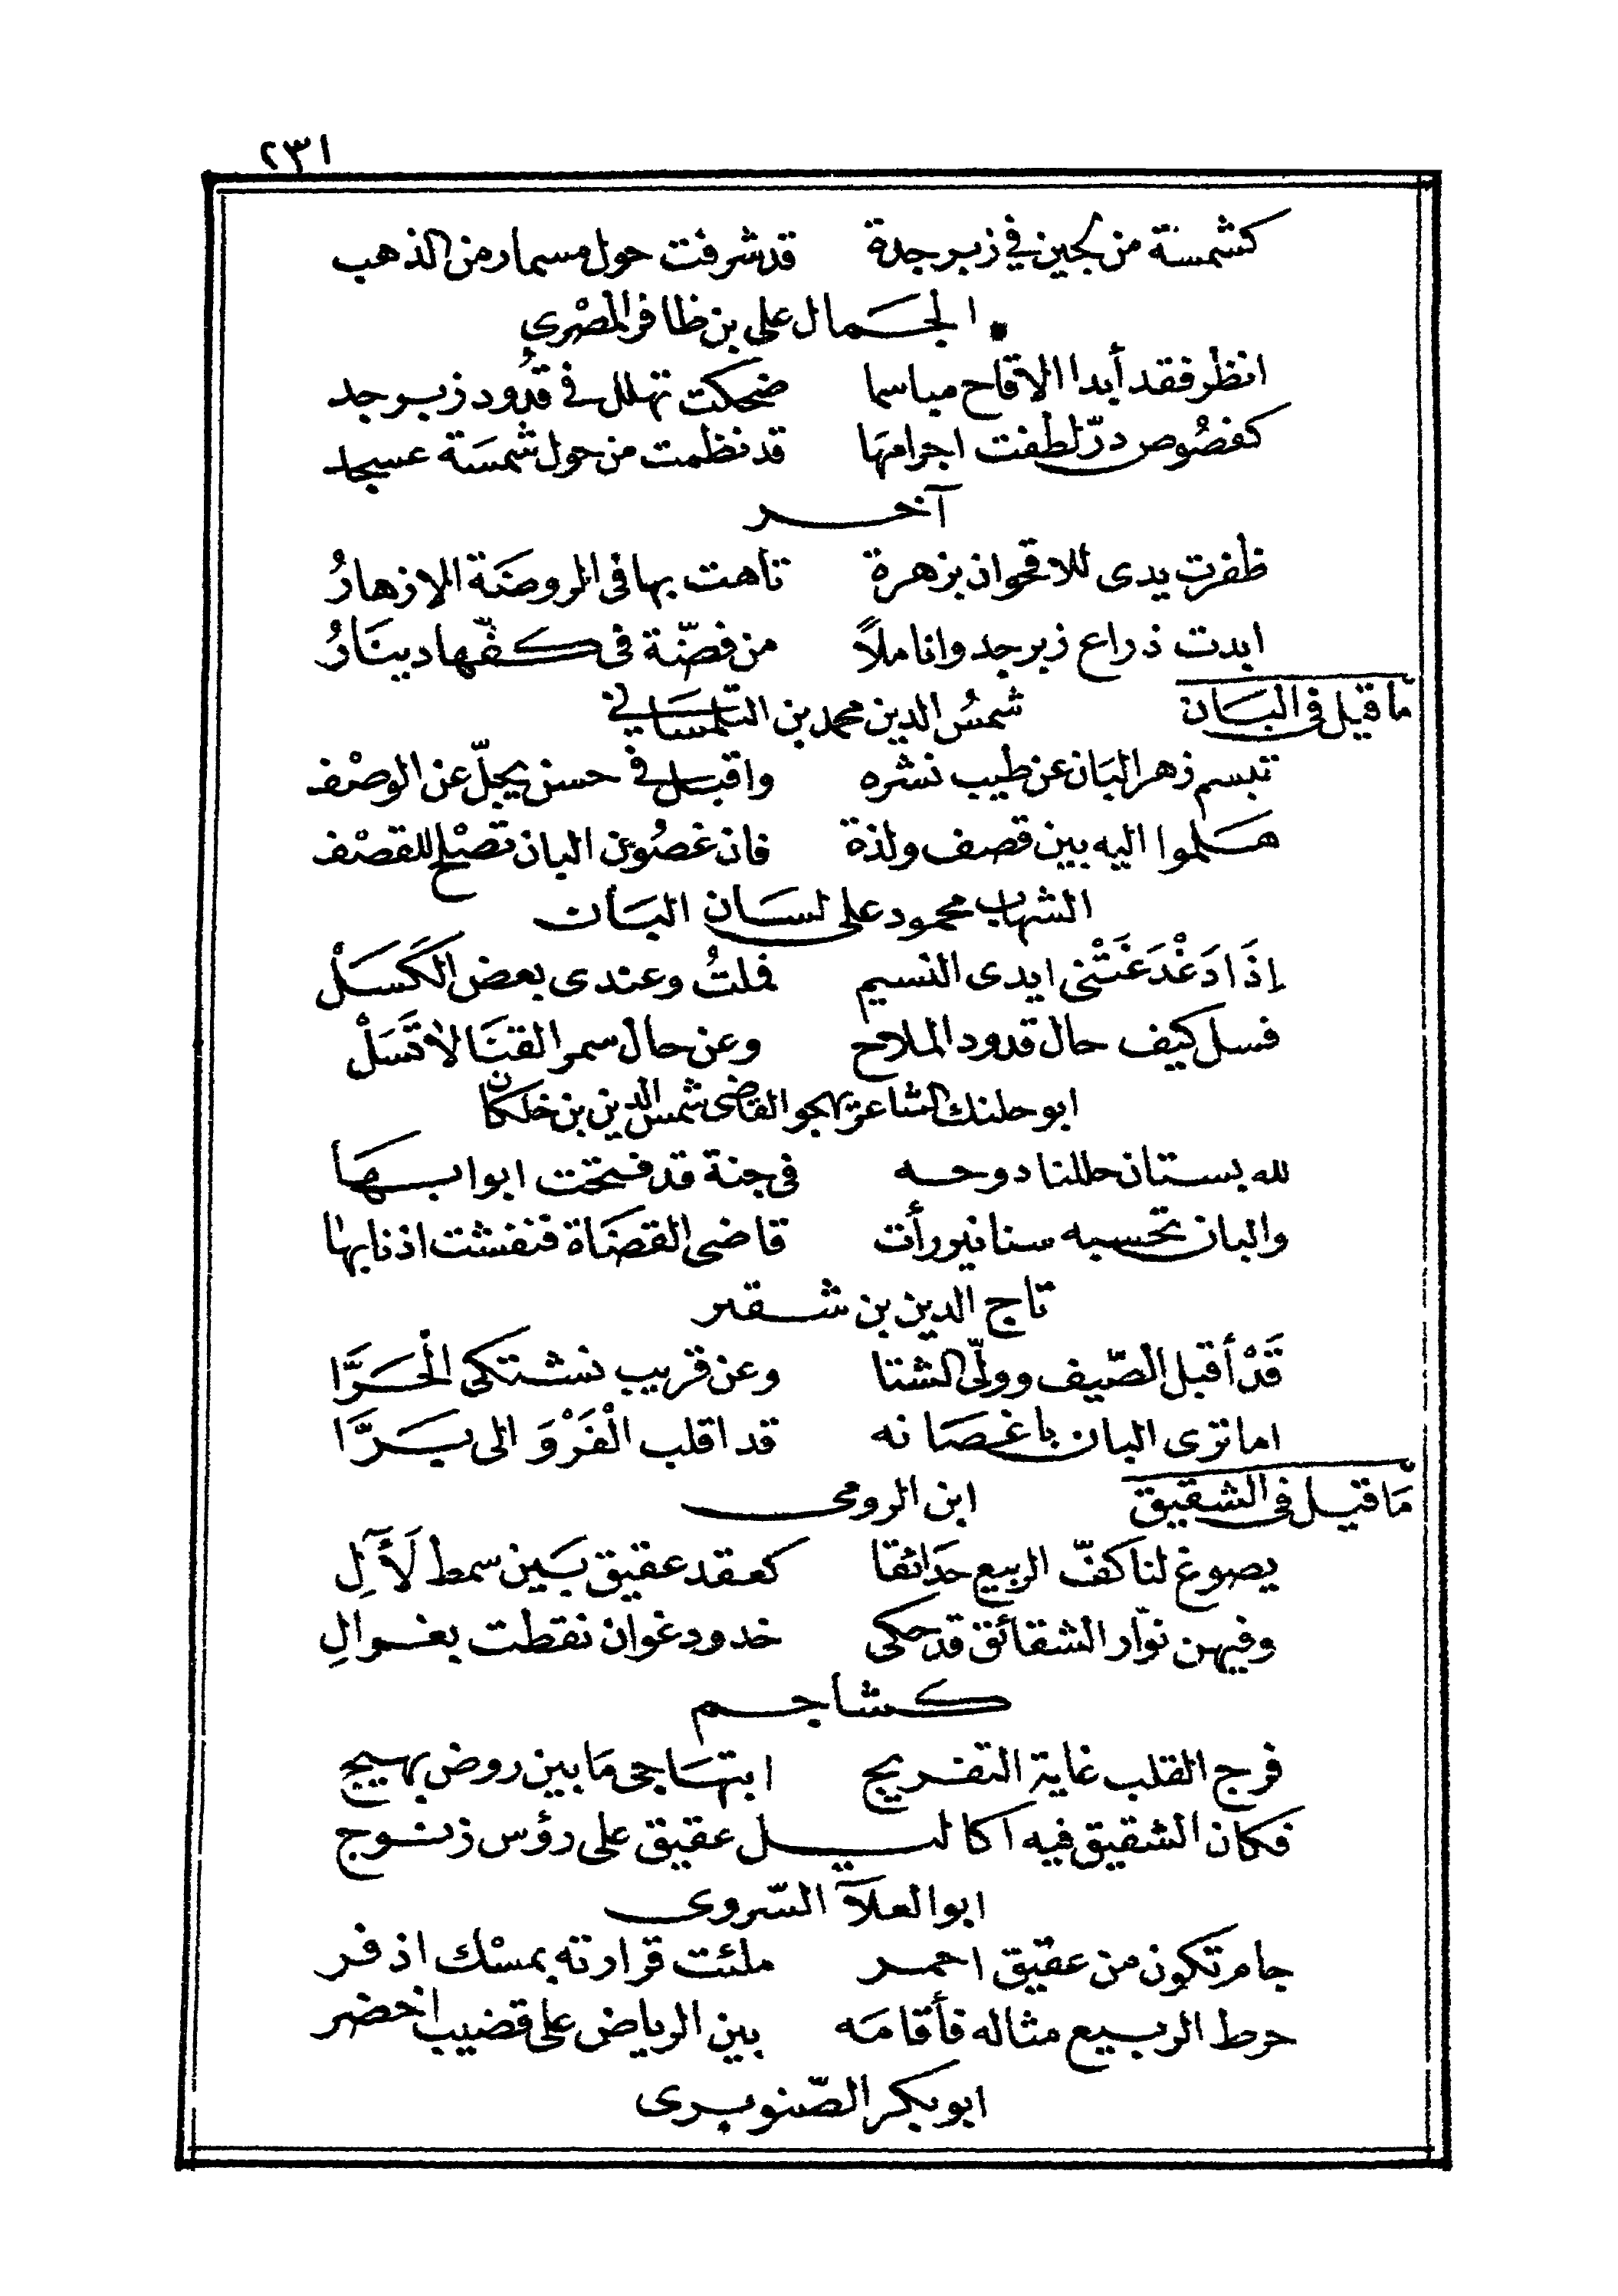 ٢٣١
كشمسة من لجين في زبرجدة قد شرفت حول مسمار من الذهب
الجمال على بن ظافر المصْرى
انظر فقد أبدا الاقاح مباسما ضحكت تهلل في قدُود زبرجد
كفصُوص درّ لطفت اجرامهَا قد نظمت من حول شمسَة عسجد
آخر
ظفرت يدى للاقحوان بزهرة تاهت بها فى الروضَة الازهارُ
ابدت ذراع زبرجد واناملًا من فضّة فى كفّها دينَارُ
مَا قيل فى البَان شمسُ الدين محمد بن التلمسَانى
تبسم زهر البَان عن طيب نشره واقبل فى حسن يجلّ عن الوصْف
هَلموا اليه بين قصف ولذة فان غصُون البان تصْلح للقصْف
الشهاب محمود على لسَان البَان
اِذَا دَغْدَغَتْنى ايدى النسيم فلتُ وعندى بعض الكَسَلْ
فسل كيف حال قدود الملاح وعن حال سمر القنَا لا تَسَلْ
ابو حلنك الشاعر يهجو القاضى شمس الدين بن خلكان
لله بستان حللنا دوحه فى جنة قد فتحت ابوابهَا
والبان تحسبه سنانير رأت قاضى القضَاة فنفشت اذنابها
تاج الدين بن شقير
قَدْ أقبل الصّيف وولّى الشتا وعن قريب نشتكى الْحَرَّا
اما ترى البان باغصَانه قد اقلب الْفَرْوَ الى بَرَّا
مَا قيل فى الشقيق ابن الرومى
يصوغ لنا كفّ الربيع حدَائقا كعقد عقيق بَين سمط لَألِ
وفيهن نوّار الشقائق قد حكى خدود غوان نقطت بغوالِ
كشاجم
فرج القلب غاية التفريج ابتهَاجى مَا بين روض بهيج
فكان الشقيق فيه اكاليل عقيق على رؤس زنوج
ابو العلآ السّروى
جام تكون من عقيق احمر ملئت قرارته بمسْك اذفر
خرط الربيع مثاله فأقامَه بين الرياض على قضيب اخضر
ابو بكر الصّنوبرى